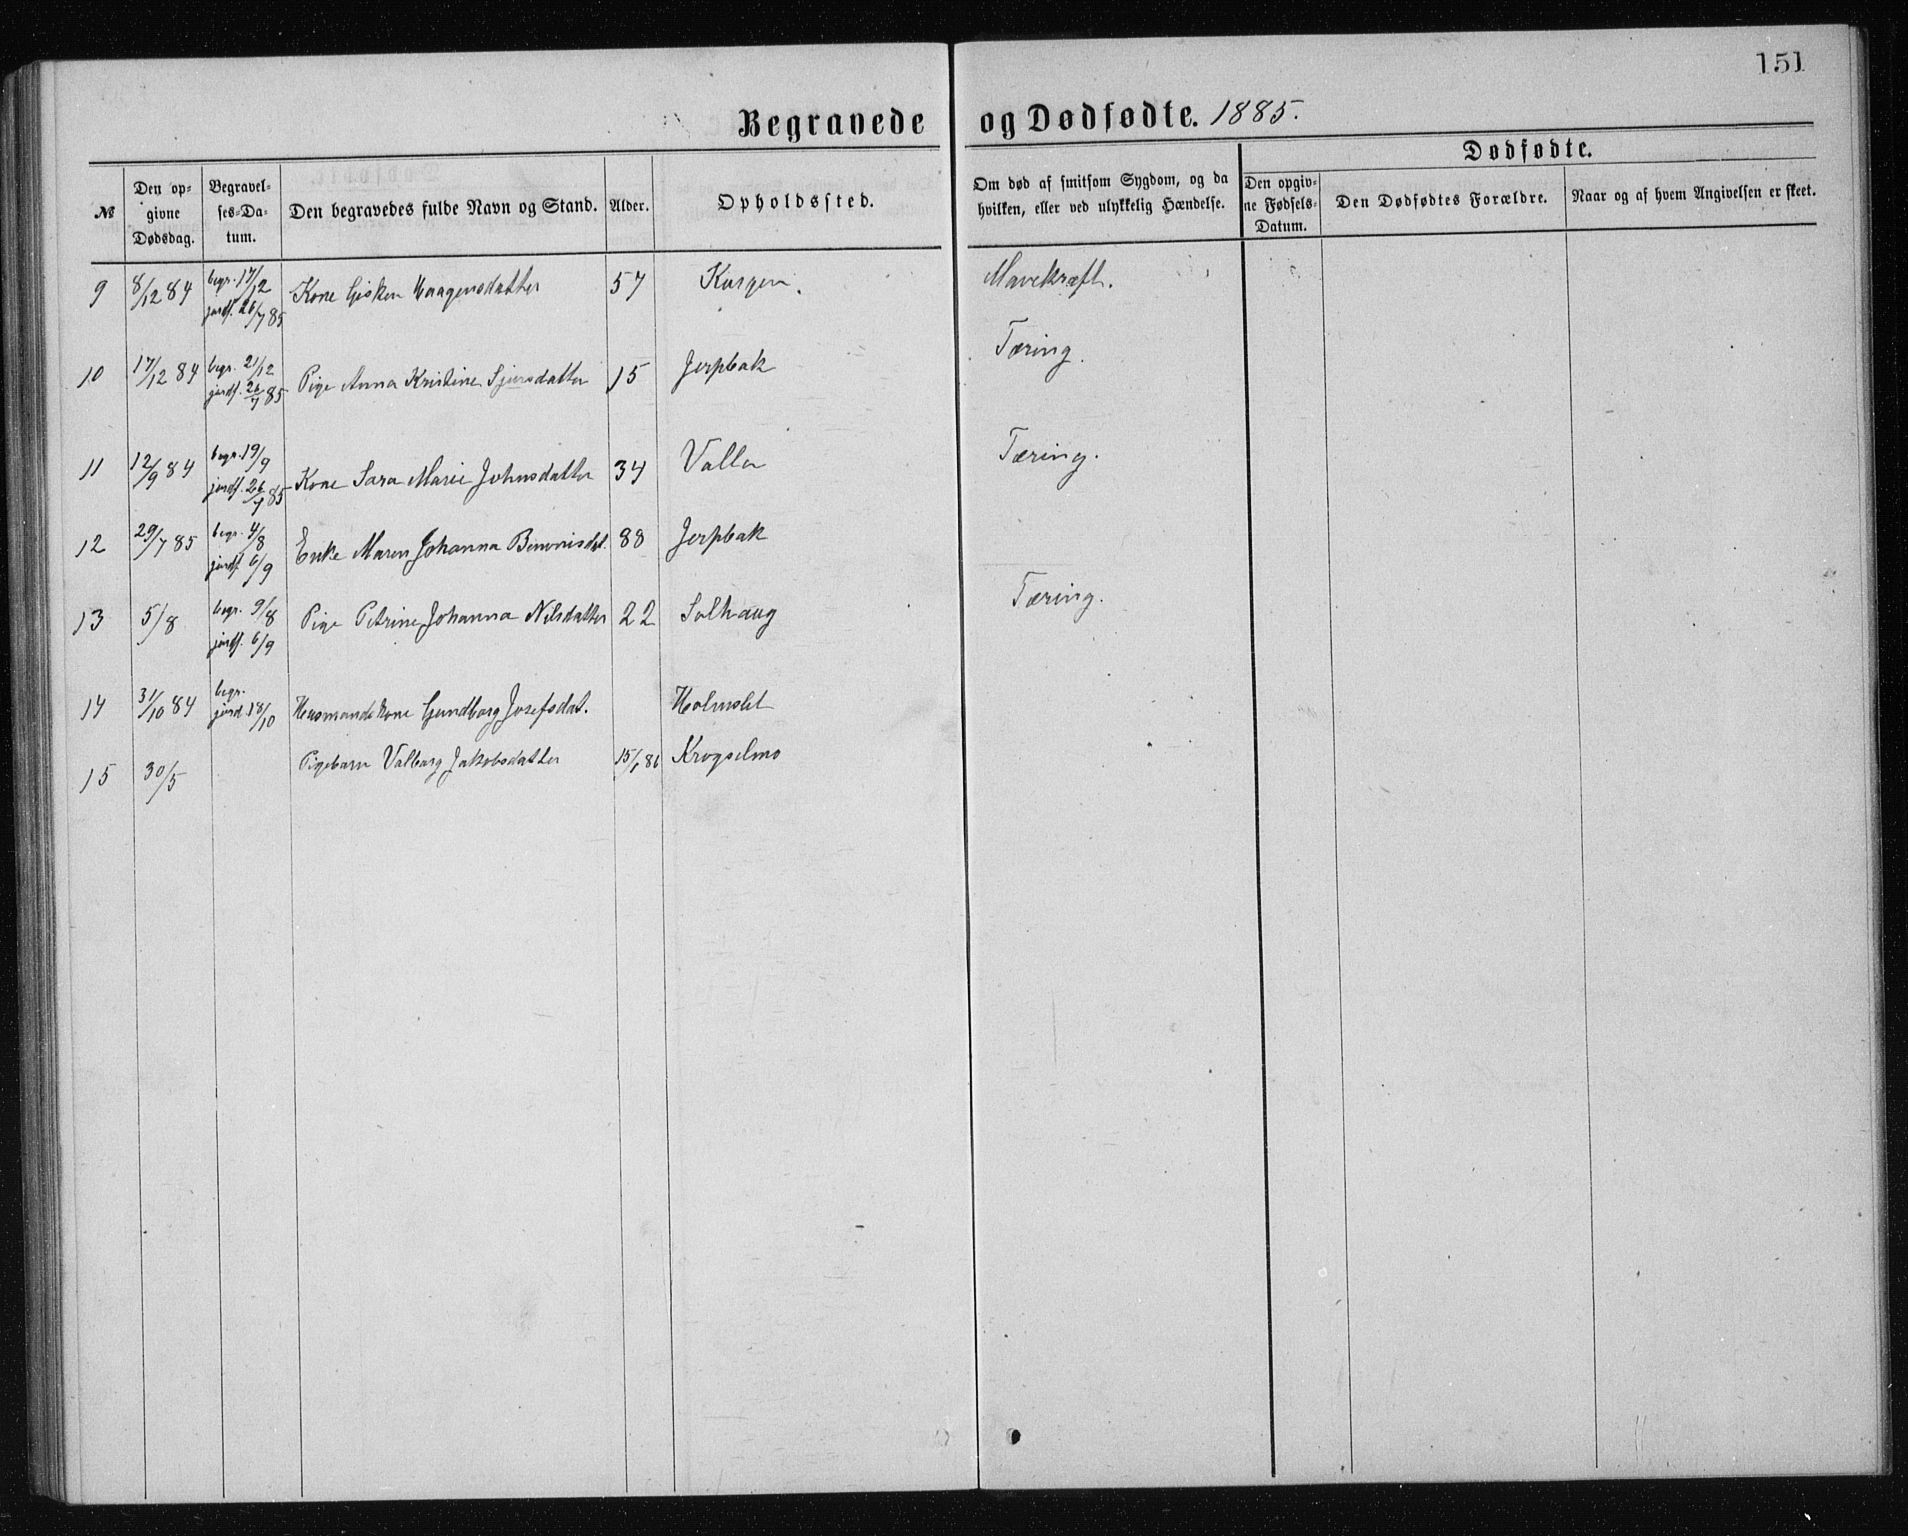 151
Begravede og Dødfødte. 1885.
Dødfødte.
№
Den opgivne Dødsdag.
Begravelses-Datum.
Den begravedes fulde Navn og Stand.
Alder.
Opholdssted.
Om død af smitsom Sygdom, og da hvilken, eller ved ulykkelig Hændelse.
Den opgivne Fødsels-Datum.
Den Dødfødtes Forældre.
Naar og af hvem Angivelsen er skeet.
9 8/12 84 begr. 17/12 jordf. 26/7 85 Kone Gisken Haagensdatter 57 Korgen. Mavekræft.
10 17/12 84 begr. 21/12 jordf. 26/7 85 Pige Anna Kristine Sjursdatter 15 Jerpbak Tæring.
11 12/9 84 begr. 19/9 jordf. 26/7 85 Kone Sara Marie Johnsdatter 34 Valla Tæring.
12 29/7 85 begr. 4/8 jordf. 6/9 Enke Maren Johanna 88 Jerpbak
13 5/8 begr. 9/8 jordf. 6/9 Pige Petrine Johanna Nilsdatter 22 Solhaug Tæring.
14 31/10 84 begr. jord. 18/10 Husmandskone Gundborg Josefsdat. Holmslet
15 30/5 Pigebarn Valborg Jakobsdatter Krogselmo